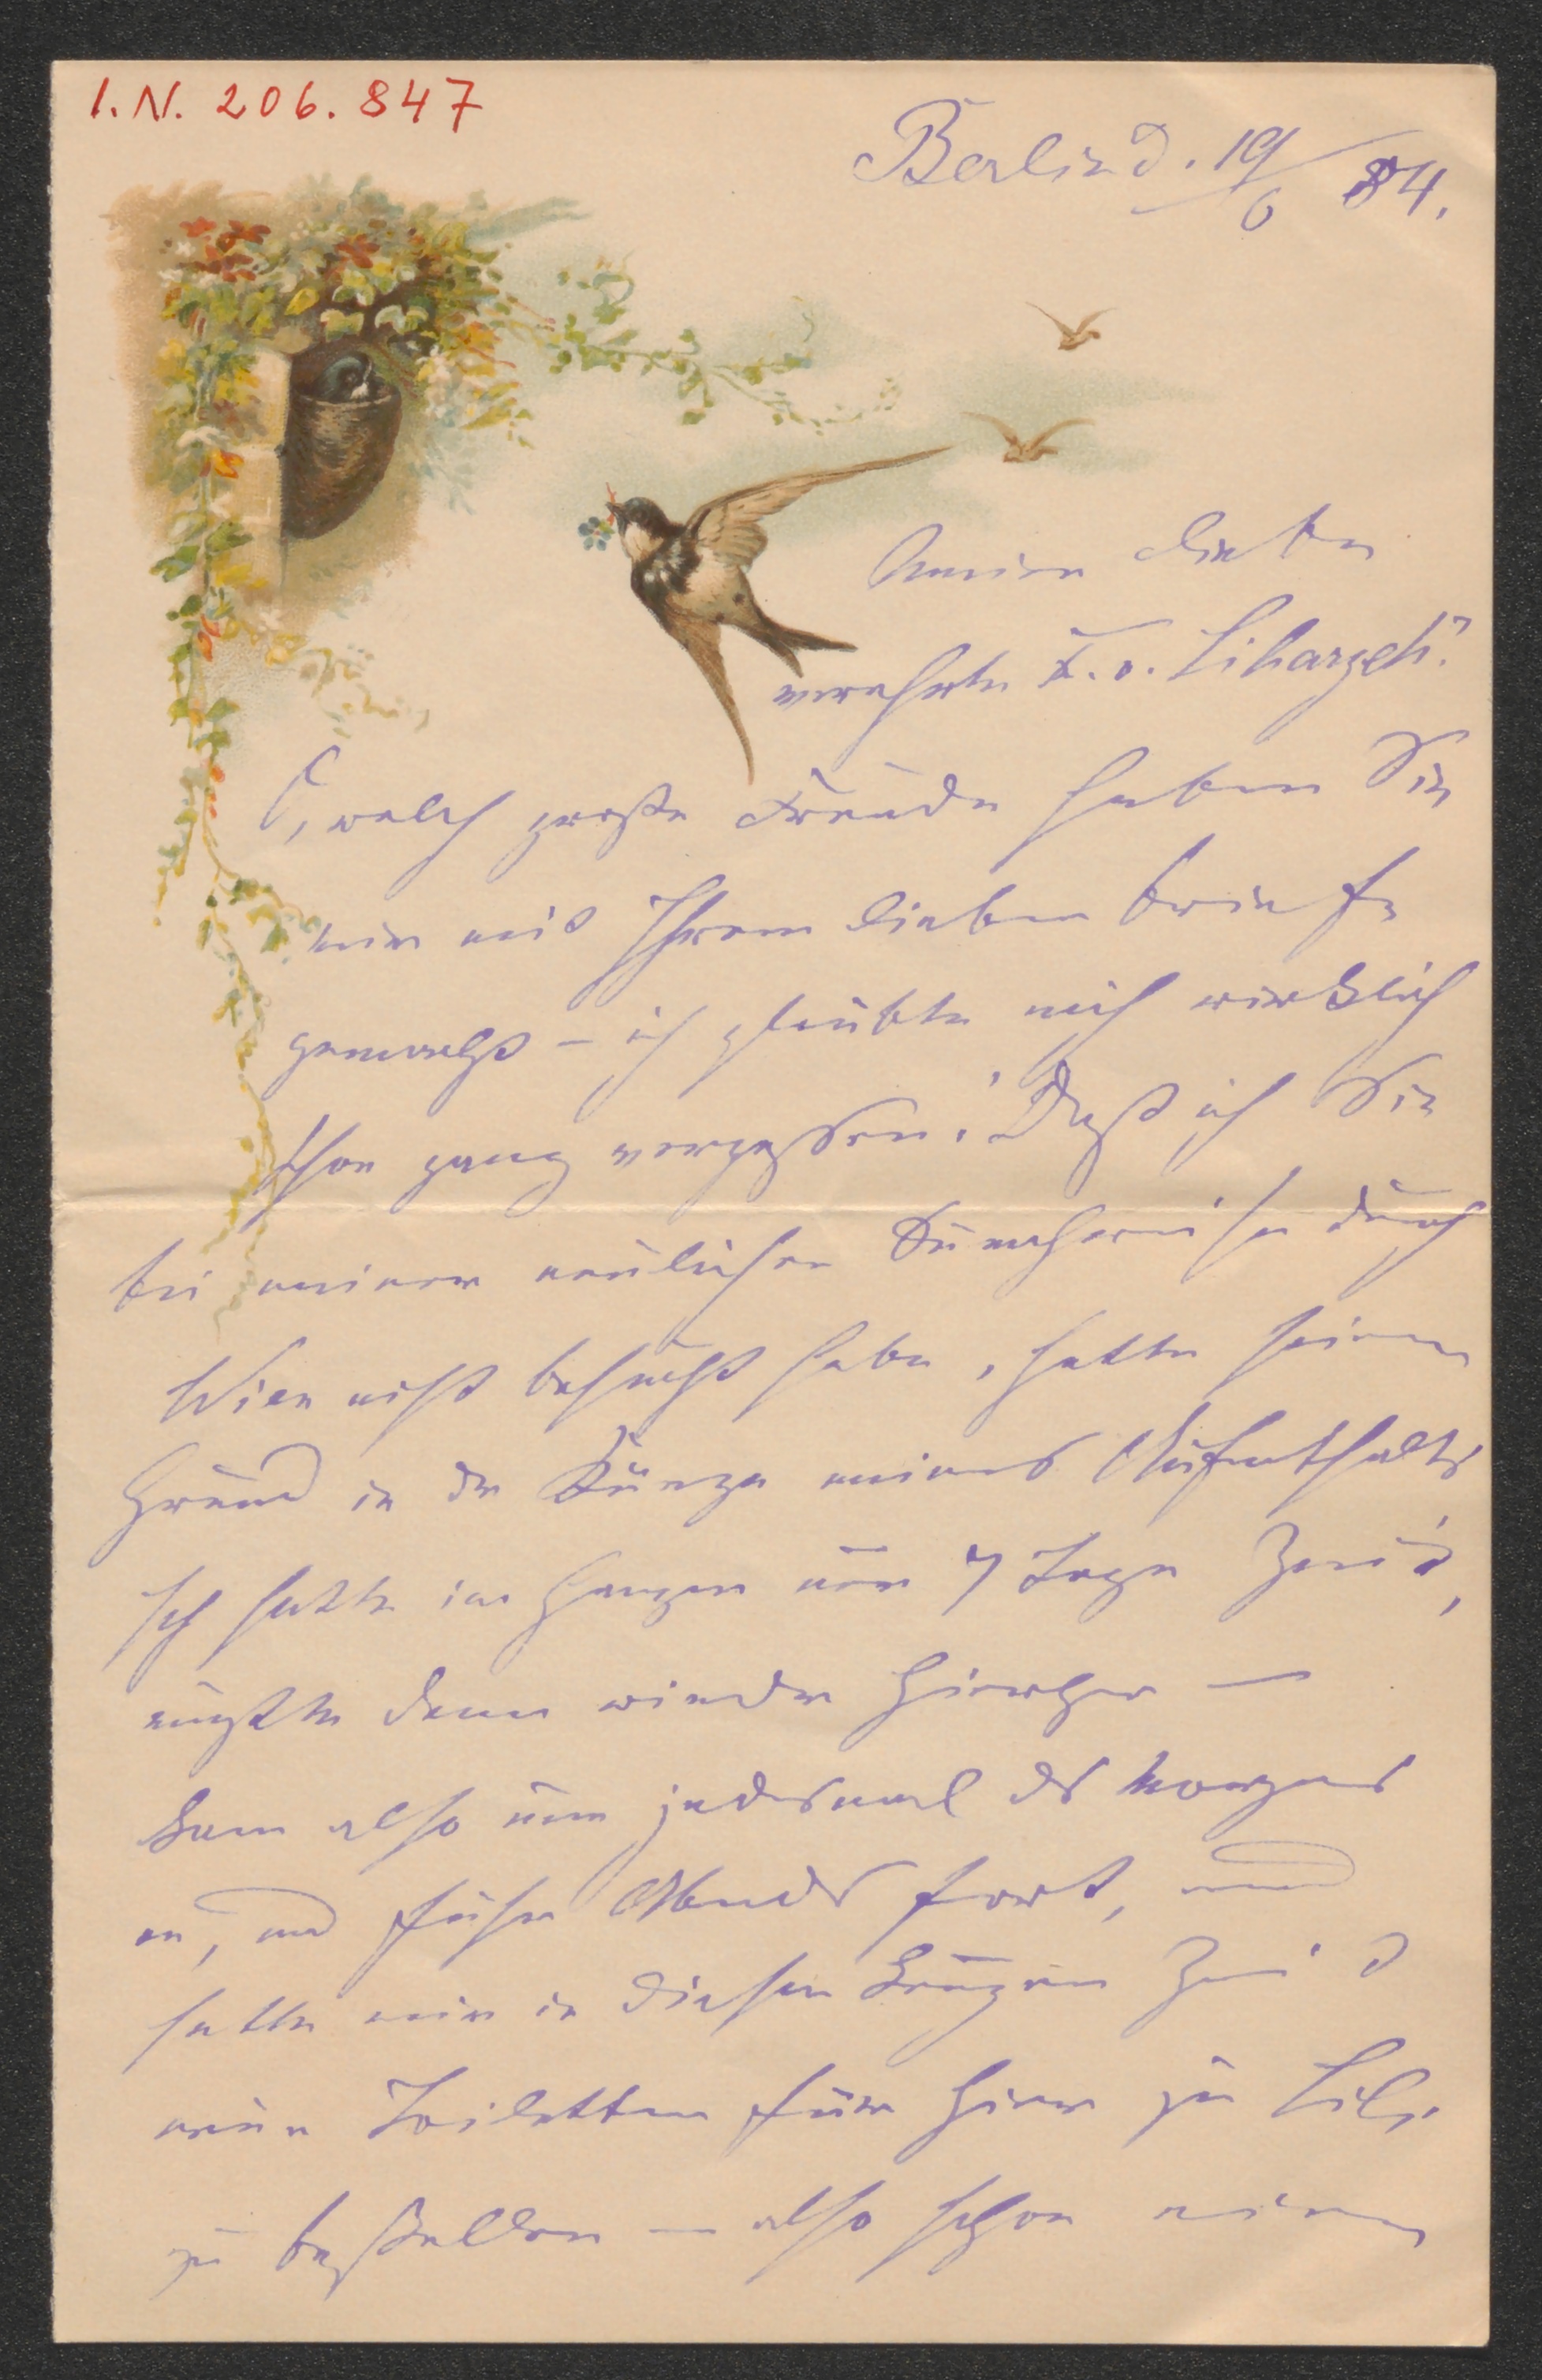 I.N. 206.847
Berlin d. 19/6 84.
Meine liebe
verehrte F. v. Liharzek!
O, welch große Freude haben Sie
mir mit Ihrem lieben Briefe
gemacht – ich glaubte mich wirklich
schon ganz vergessen! Daß ich Sie
bei meiner neulichen Durchreise durch
Wien nicht besucht habe, hatte seinen
Grund in der Kürze meines Aufenthalts
Ich hatte im Ganzen nur 7 Tage Zeit,
mußte dann wieder hierher —
kam also nur jedesmal des Morgens
an, und fuhr Abends fort, und
hatte mir in dieser kurzen Zeit
neue Toiletten für hier zu
zu bestellen — also schon einen